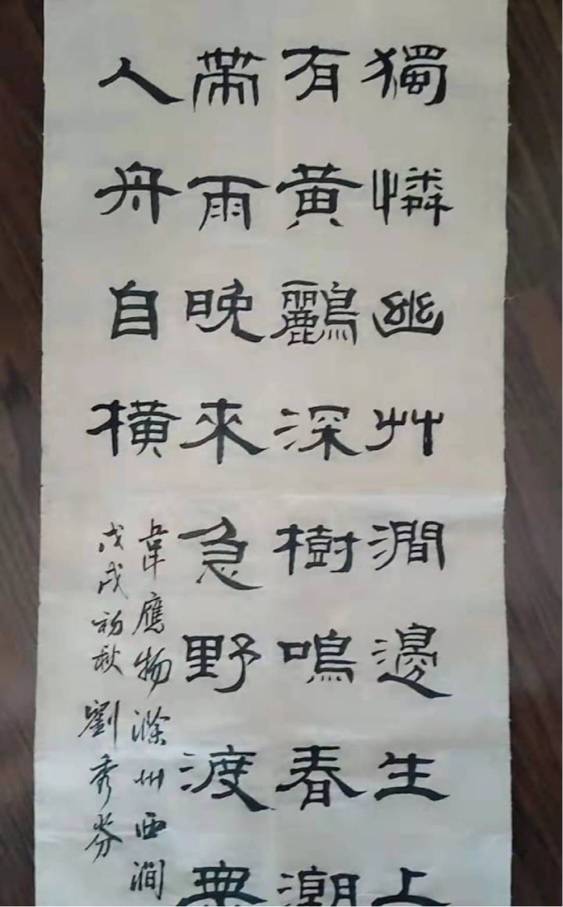 獨憐幽艸澗邊生上
有黃鸝深樹鳴春潮
帶雨晚來急野渡無
人舟自橫
韋應物滁州西澗
戊戌初秋劉秀芬